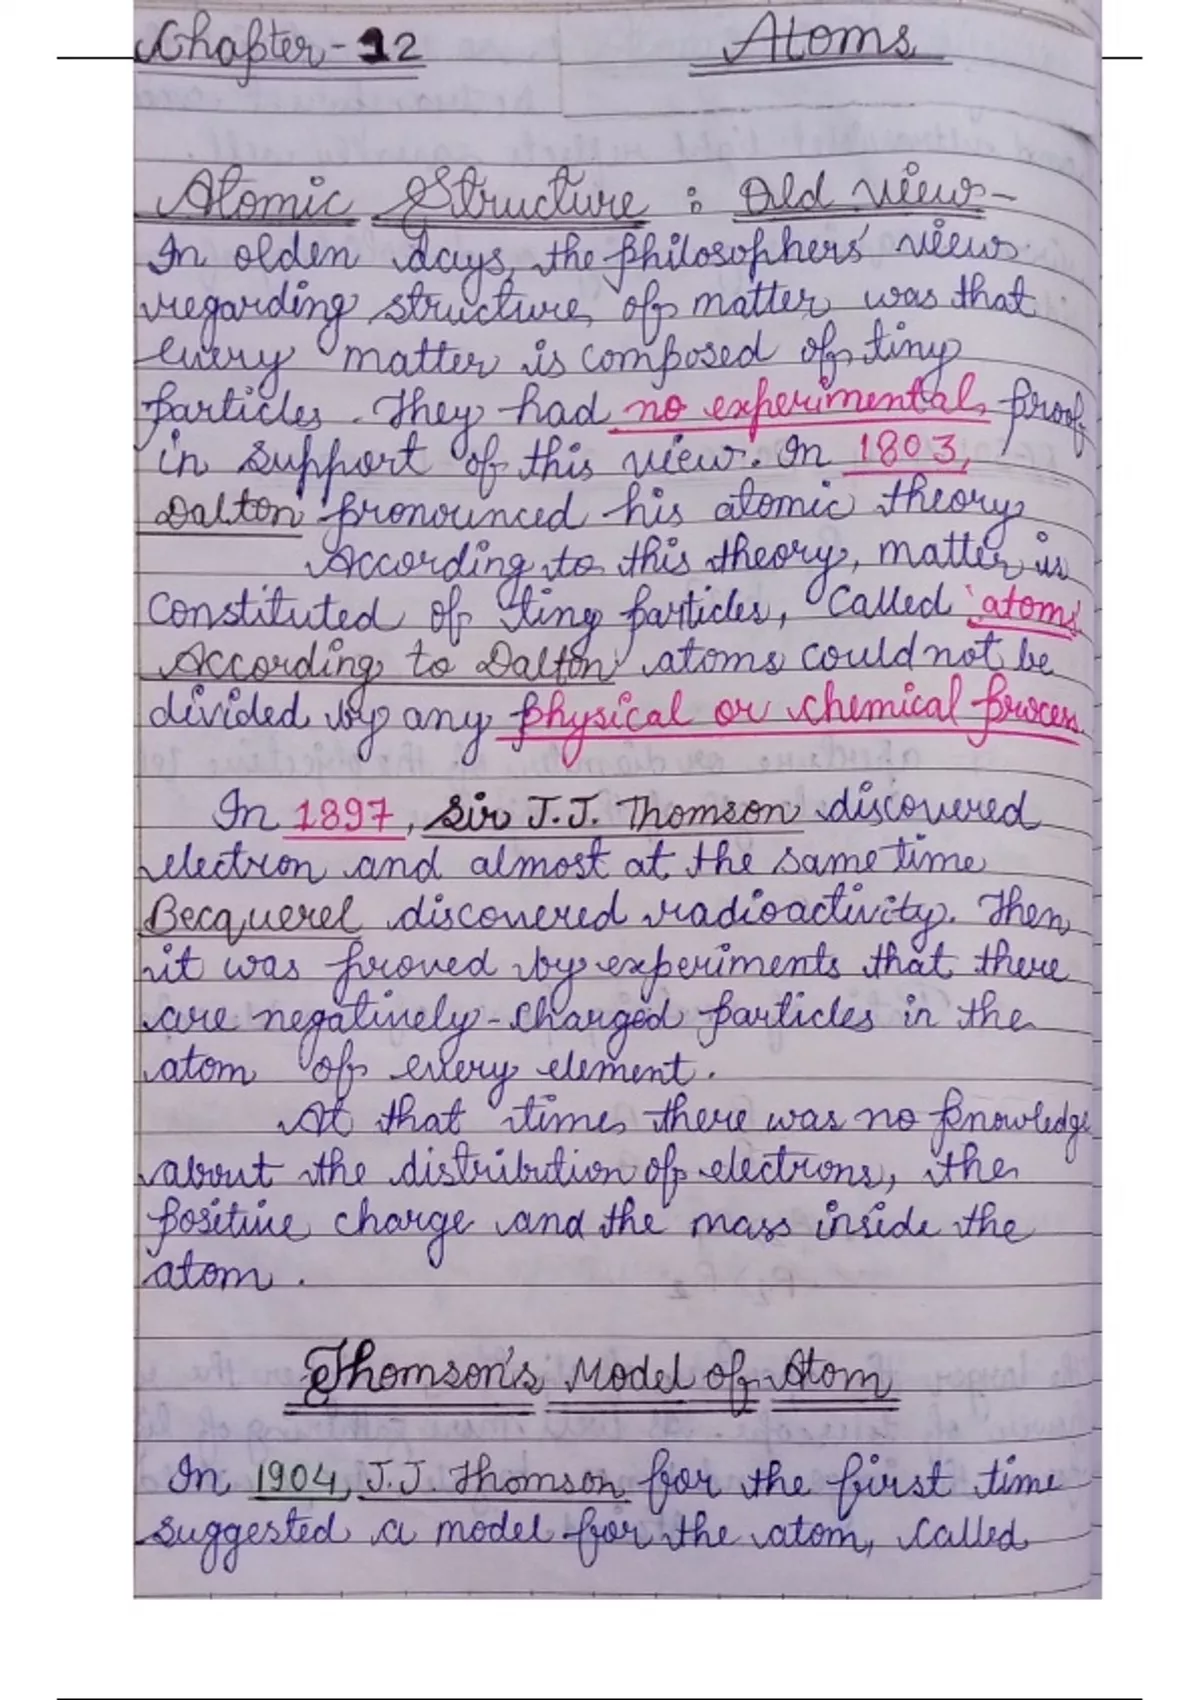 Chapter-12 Atoms
Atomic Structure : Old view-
In olden days, the philosophers' views
regarding structure of matter was that
every matter is composed of tiny
particles. They had no experimental proof
in support of this view. In 1803,
Dalton pronounced his atomic theory
According to this theory, matter is
constituted of tiny particles, called 'atoms'
According to Dalton atoms could not be
divided by any physical or chemical process.
In 1897, Sir J.J. Thomson discovered
electron and almost at the same time
Becquerel discovered radioactivity. Then
it was proved by experiments that there
are negatively-charged particles in the
atom of every element.
At that time there was no knowledge
about the distribution of electrons, the
positive charge and the mass inside the
atom.
Thomson's Model of Atom
In 1904, J.J. Thomson for the first time
suggested a model for the atom, called